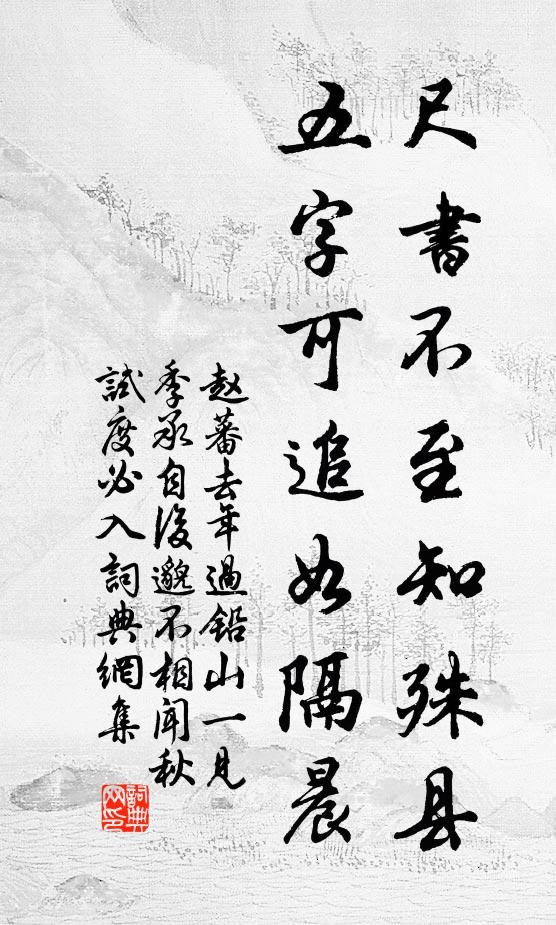 尺書不至知殊县
五字可追如隔晨
赵蕃去年過鉛山一見
季承自後邈不相闻秋
試度必入詞典網集
詞典
网印